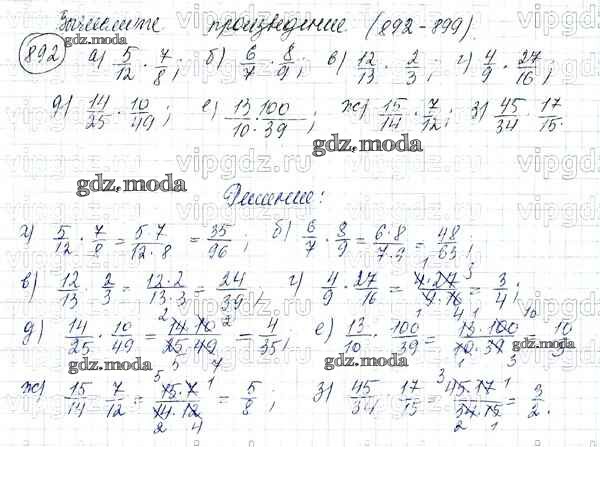 Вычислите произведение (892-899).
892 а) 5/12 · 7/8; б) 6/7 · 8/9; в) 12/13 · 2/3; г) 4/9 · 27/16;
д) 14/25 · 10/49; е) 13/10 · 100/39; ж) 15/14 · 7/12; з) 45/34 · 17/15.
Решение:
а) 5/12 · 7/8 = 5·7/12·8 = 35/96; б) 6/7 · 8/9 = 6·8/7·9 = 48/63;
в) 12/13 · 2/3 = 12·2/13·3 = 24/39; г) 4/9 · 27/16 = 4·27/9·16 = 3/4;
д) 14/25 · 10/49 = 14·10/25·49 = 4/35; е) 13/10 · 100/39 = 13·100/10·39 = 10/3
ж) 15/14 · 7/12 = 15·7/14·12 = 5/8; з) 45/34 · 17/15 = 45·17/34·15 = 3/2.
gdz.moda
vipgdz.ru